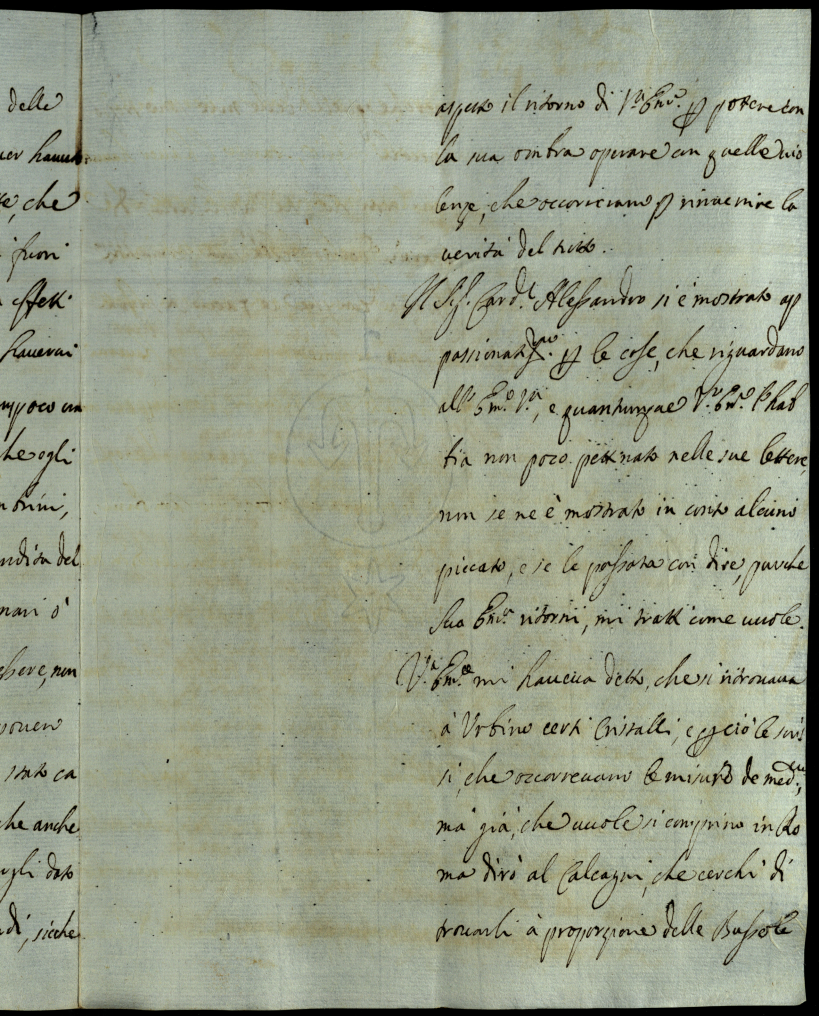 delle
uer hauuto
te, che
fuori
effetti
hauerui
mpoco un
che ogli
ndita del
nari ò
ssere, non
stato ca
che anche
egli dato
dì, sicche
aspetto il ritorno di V.ra Em.za ꝑ potere con
la sua ombra operare con quelle vio
lenze, che occorreranno ꝑ rinuenire la
uerità del tutto.
Il Sig.r Card.l Alessandro si è mostrato ap
passionatiss.mo ꝑ le cose, che riguardano
all' Em.za V.ra, e quantunque V.ra Em.za l'hab
bia non poco pettinato nelle sue lettere,
non se ne è mostrato in conto alcuno
piccato, e se le passata con dire, purche
Sua Em.za ritorni, mi tratti come uuole.
V.ra Em.za mi haueua detto, che si ritrouaua
à Urbino certi Cristalli, e ꝑ ciò le scris
si, che occorreuano le misure de med.mi,
mà già, che uuole si comprino in Ro
ma dirò al Calcagni, che cerchi di
trouarli à proporzione delle Bussole